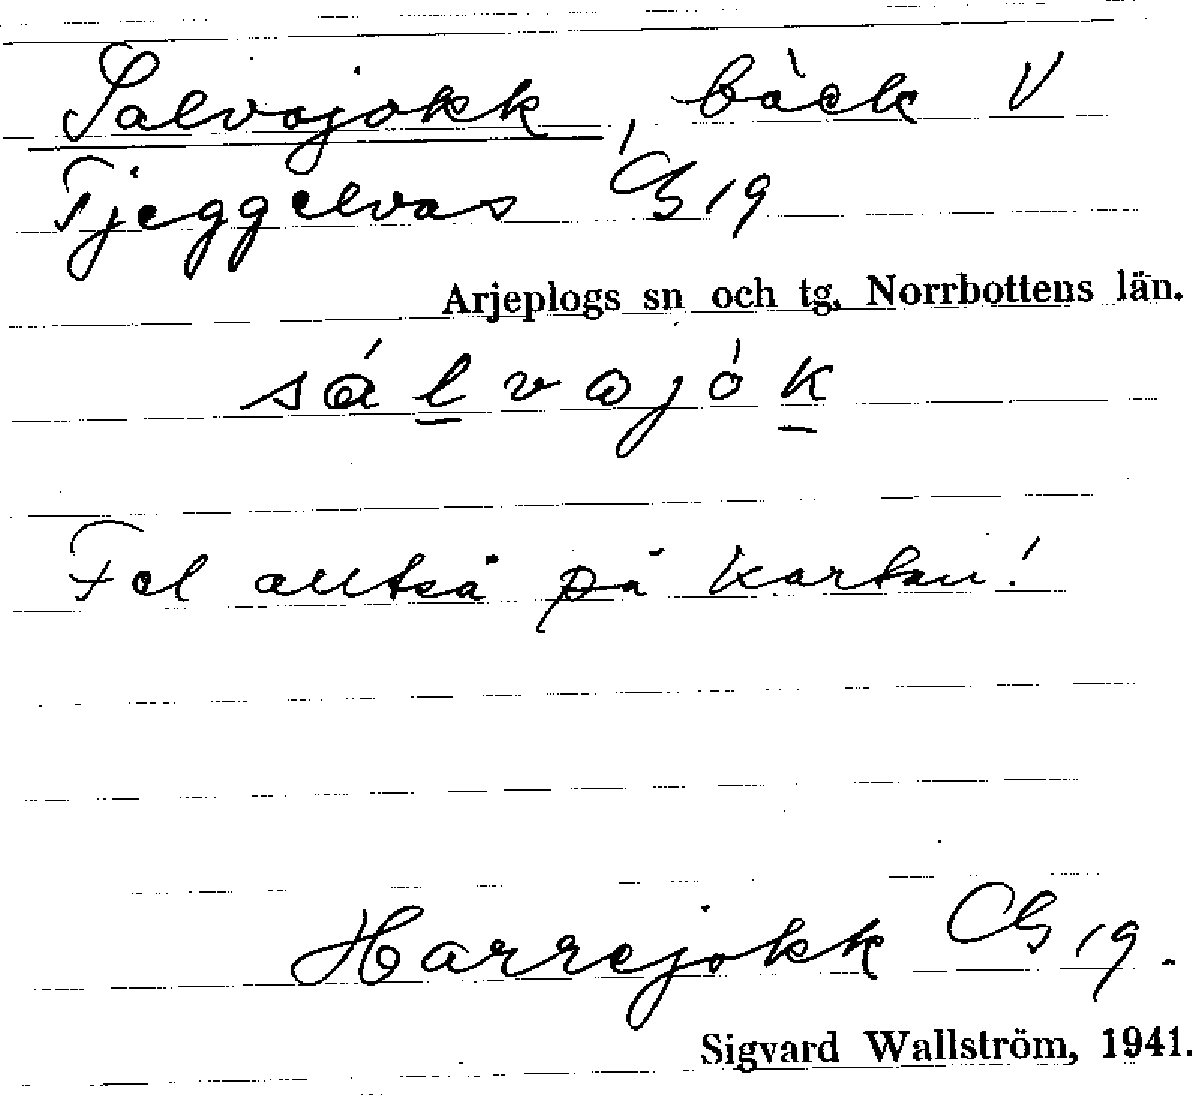 Salvojokk, bäck V
Tjeggelvas G 19
Arjeplogs sn och tg, Norrbottens län.
sálvajók
Fel alltså på kartan!
Harrejokk G 19.
Sigvard Wallström, 1941.